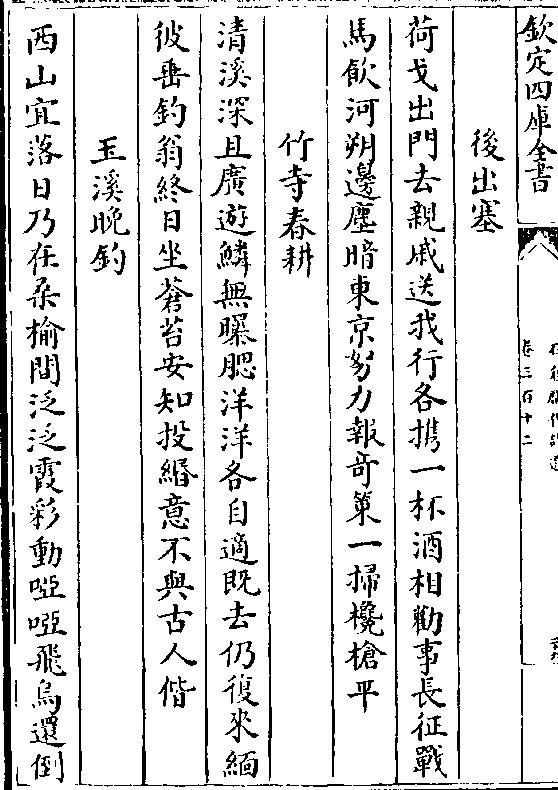 欽定四庫全書
卷三百十二
後出塞
荷戈出門去親戚送我行各攜一杯酒相勸事長征戰
馬飲河朔邊塵暗東京努力報奇策一掃欃槍平
竹寺春耕
清溪深且廣遊鱗無曝腮洋洋各自適既去仍復來緬
彼垂釣翁終日坐蒼苔安知投緡意不與古人偕
玉溪晚釣
西山宜落日乃在桑榆間泛泛霞彩動啞啞飛烏還倒